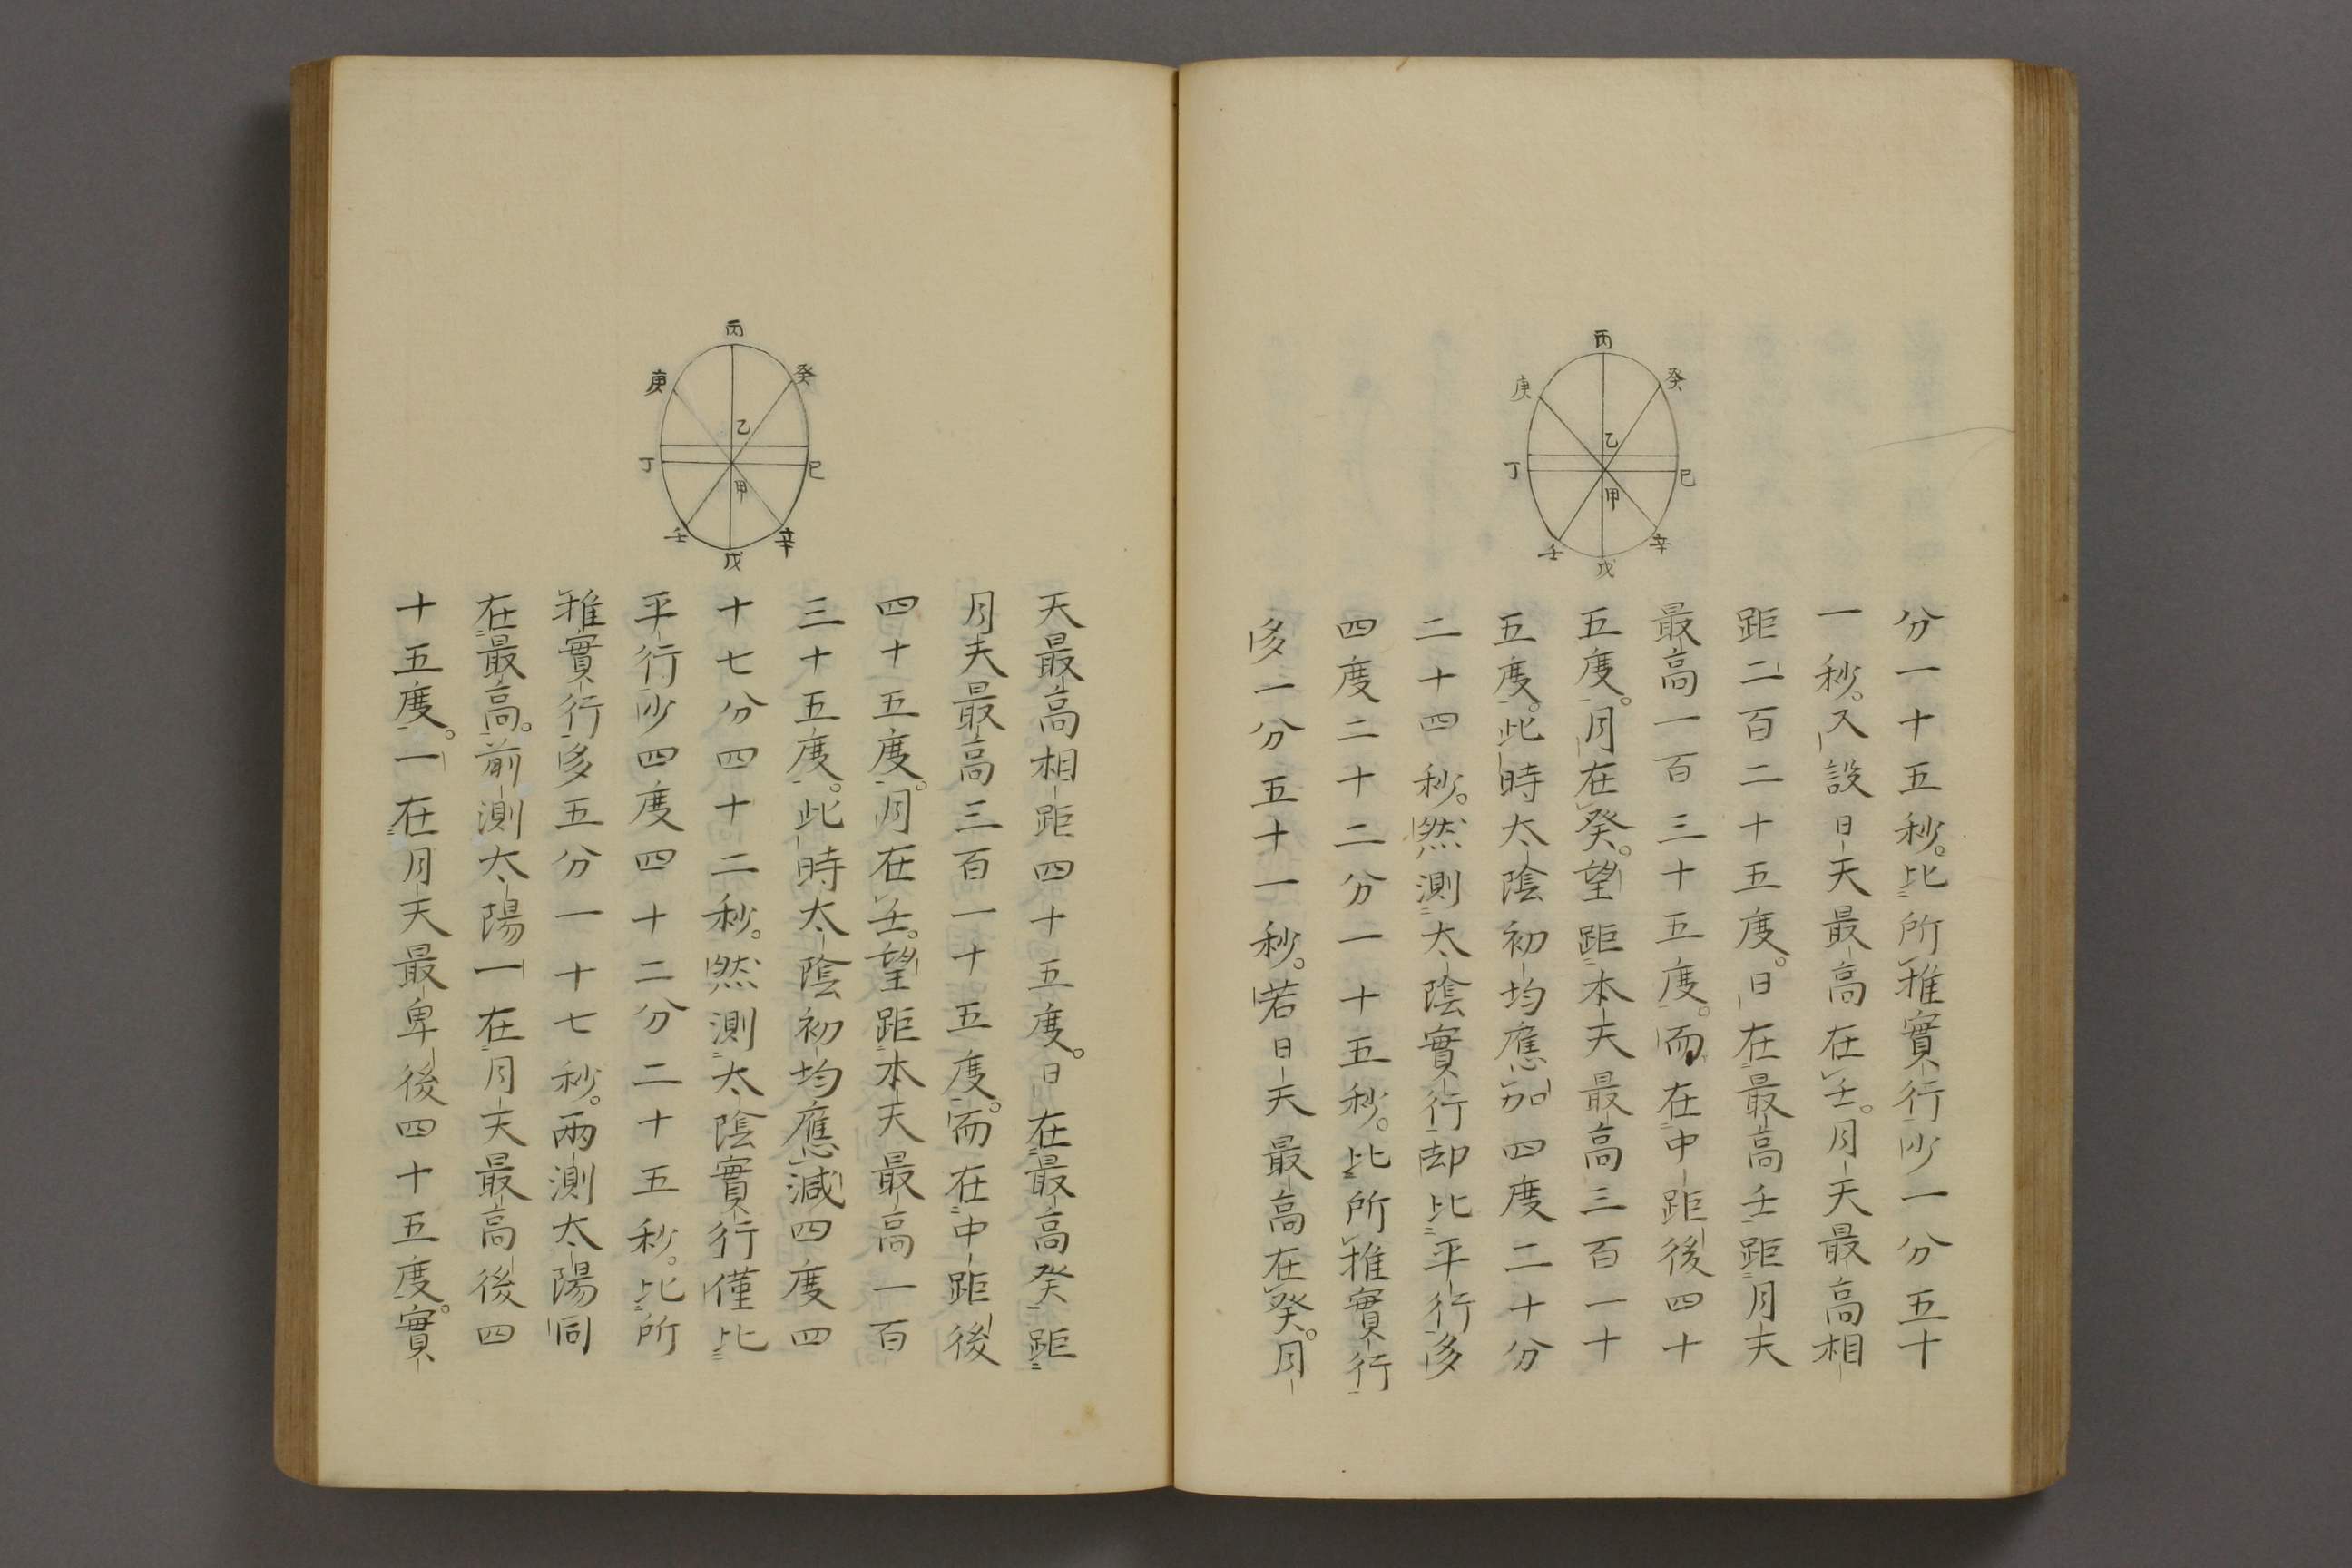 丙
癸
庚
乙
丁
巳
甲
壬
辛
戊
分一十五秒。比所推實行少一分五十
一秒。又設日天最高在壬。月天最高相
距二百二十五度。日在最高壬距月天
最高一百三十五度。而在中距後四十
五度。月在癸。望距本天最高三百一十
五度。此時太陰初均應加四度二十分
二十四秒。然測太陰實行却比平行多
四度二十二分一十五秒。比所推實行
多一分五十一秒。若日天最高在癸。月
丙
癸
庚
乙
丁
巳
甲
壬
辛
戊
天最高相距四十五度。日在最高癸距
月天最高三百一十五度。而在中距後
四十五度。月在壬。望距本天最高一百
三十五度。此時太陰初均應減四度四
十七分四十二秒。然測太陰實行僅比
平行少四度四十二分二十五秒。比所
推實行多五分一十七秒。兩測太陽同
在最高。前測太陽一在月天最高後四
十五度。一在月天最卑後四十五度。實